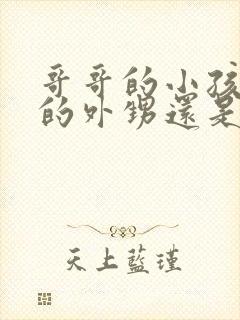 哥哥的小孩
的外甥還是
天上藍瑾